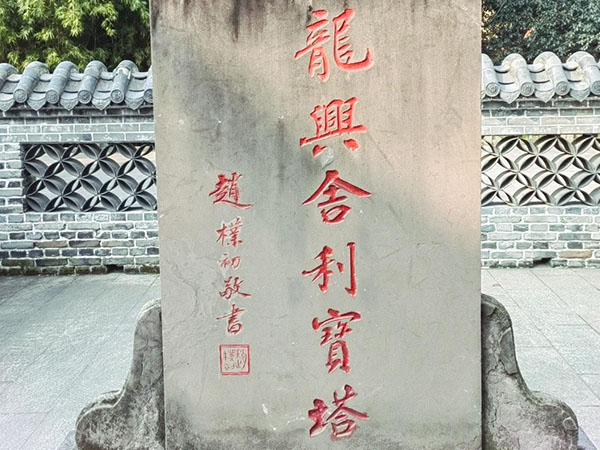 龍興舍利寶塔
趙樸初敬書